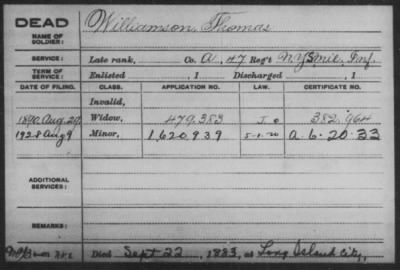 DEAD
NAME OF SOLDIER: Williamson, Thomas
SERVICE: Late rank, Co. A, 47 Reg't N.Y.S. Mil. Inf.
TERM OF SERVICE: Enlisted , 1 Discharged , 1
DATE OF FILING. CLASS. APPLICATION NO. LAW. CERTIFICATE NO.
Invalid,
1890 Aug. 29 Widow, 479,383 J 382,964
1928 Aug 9 Minor, 1,620,939 5-1-20 A-6-20-33
ADDITIONAL SERVICES:
REMARKS:
Died Sept 22, 1883, at Long Island City,